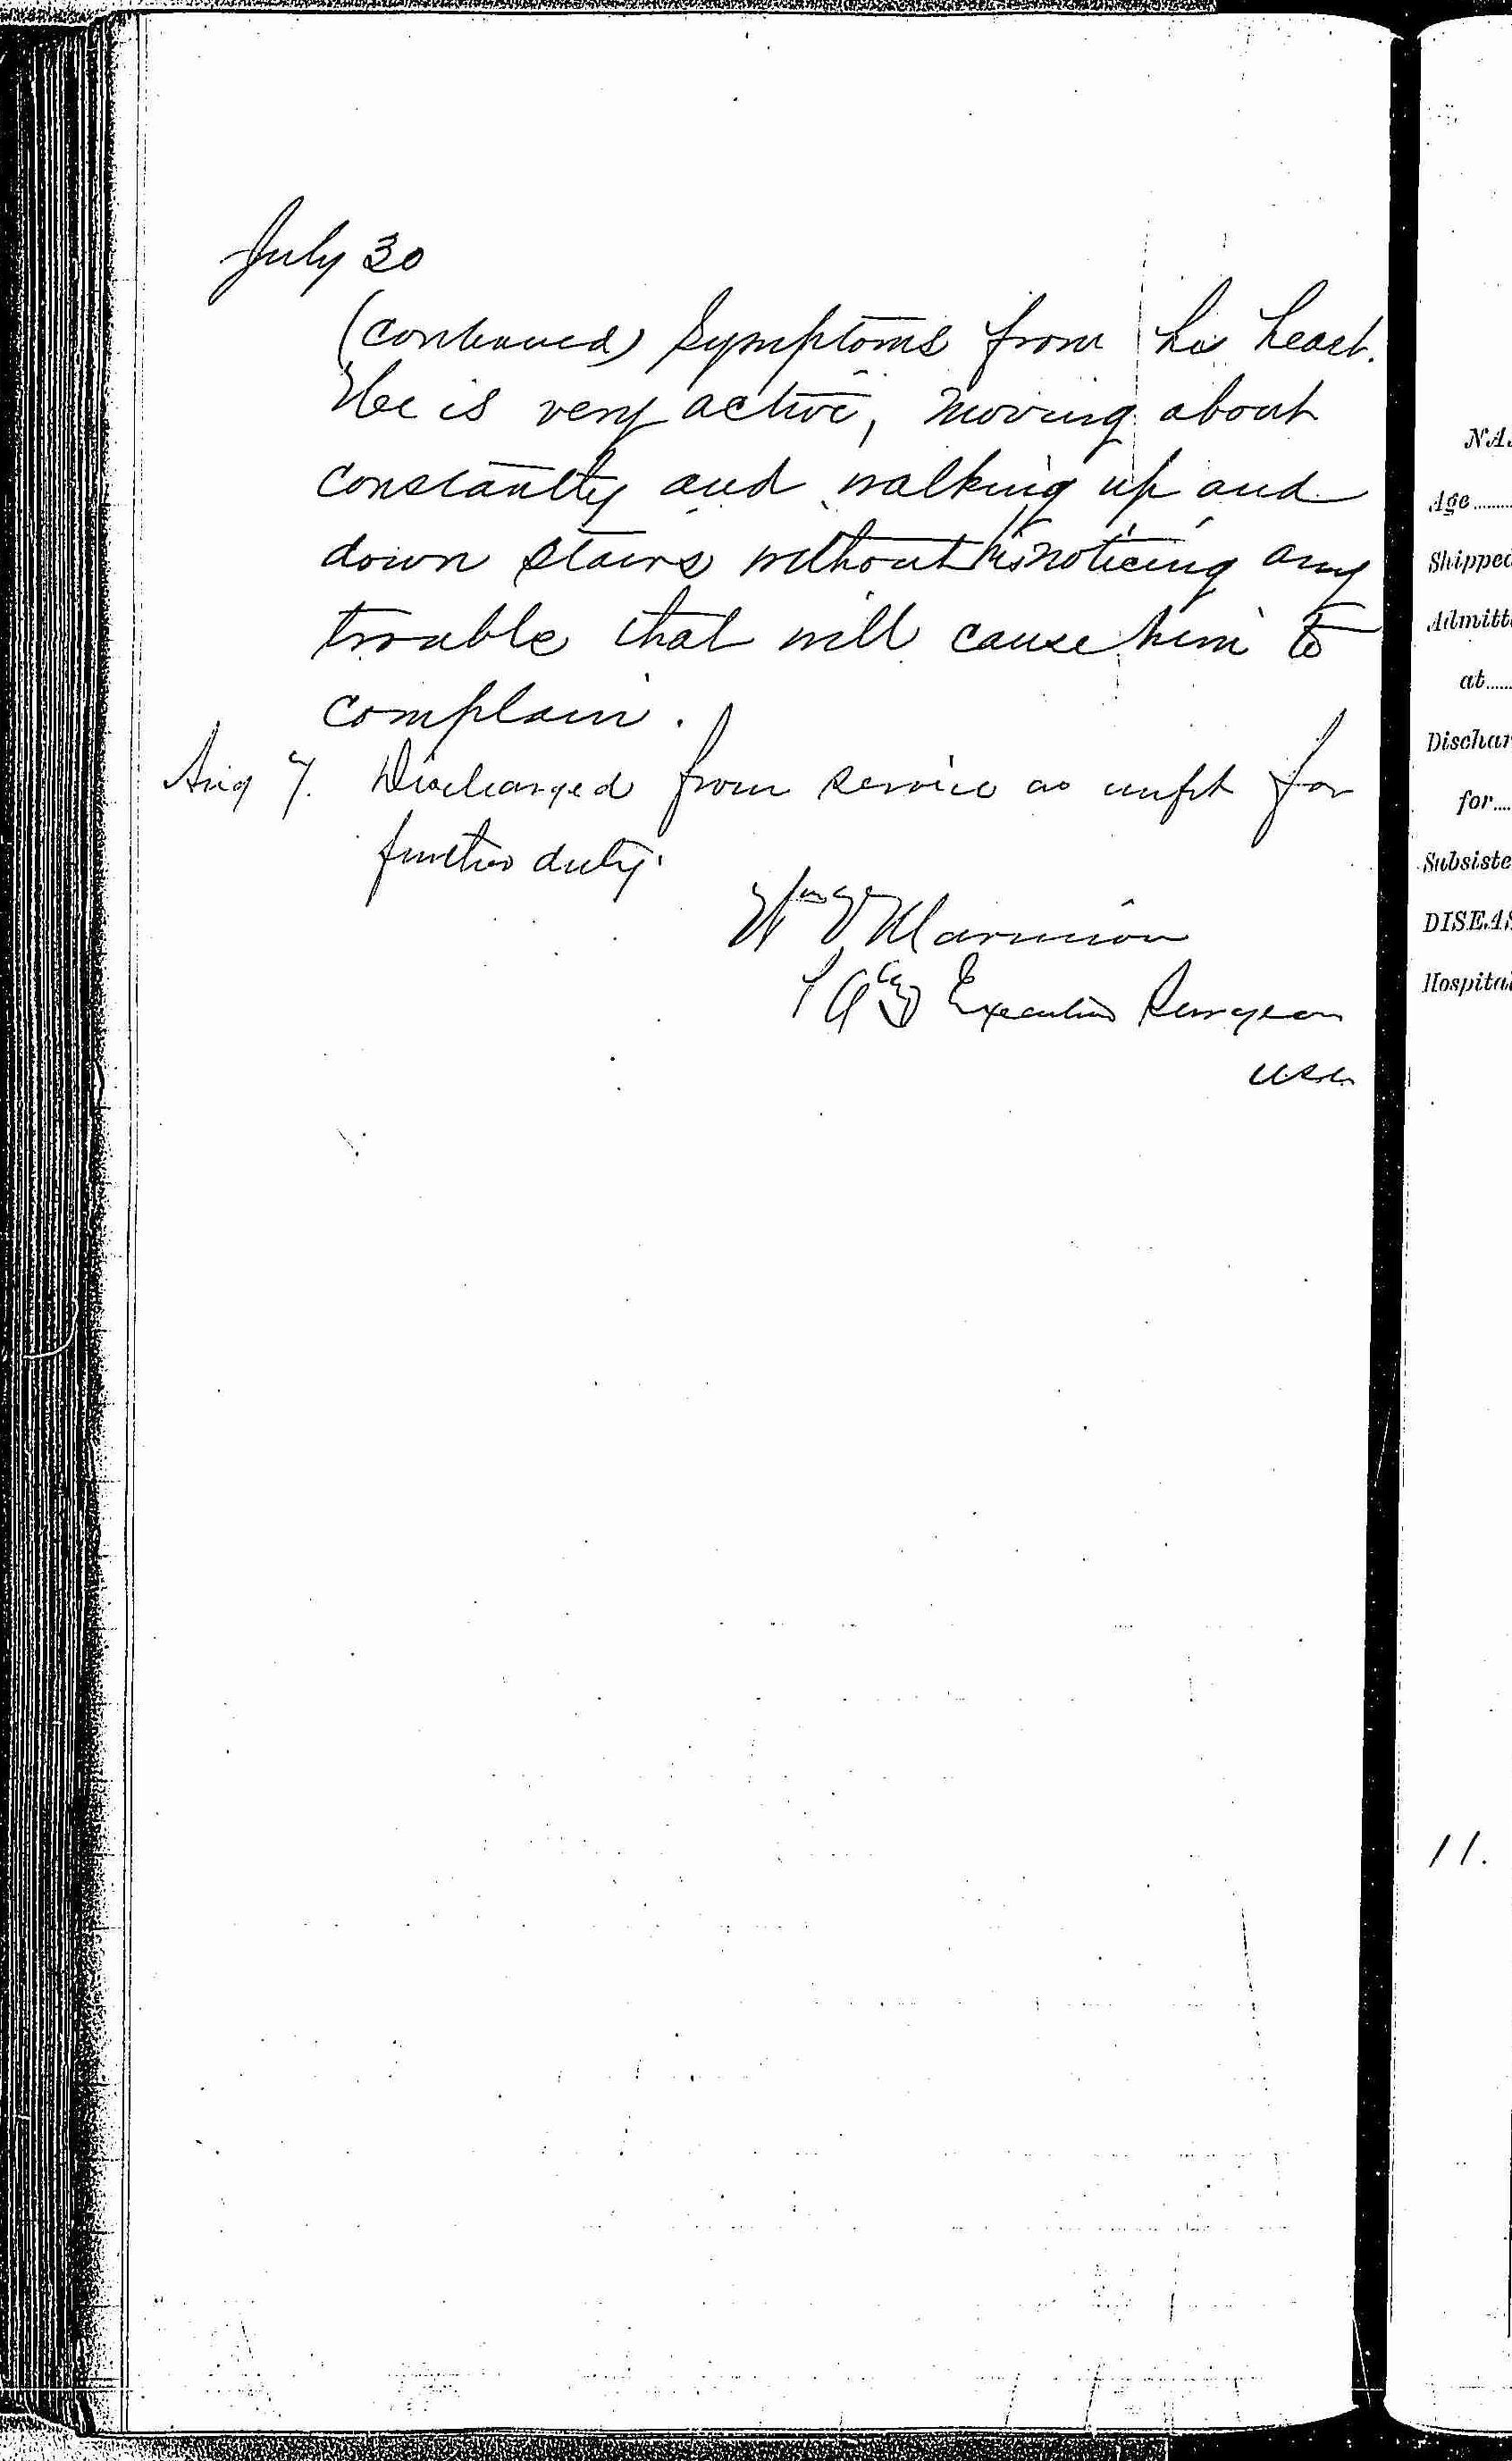 July 30
(continued) Symptoms from his heart.
He is very active, moving about
constantly and walking up and
down stairs without his noticing any
trouble that will cause him to
complain.
Aug 7. Discharged from service as unfit for
further duty.
Wm V Marmion
P A Executive Surgeon
USN
NA
Age
Shipped
Admitt
at
Dischar
for
Subsiste
DISEAS
Hospital
11.